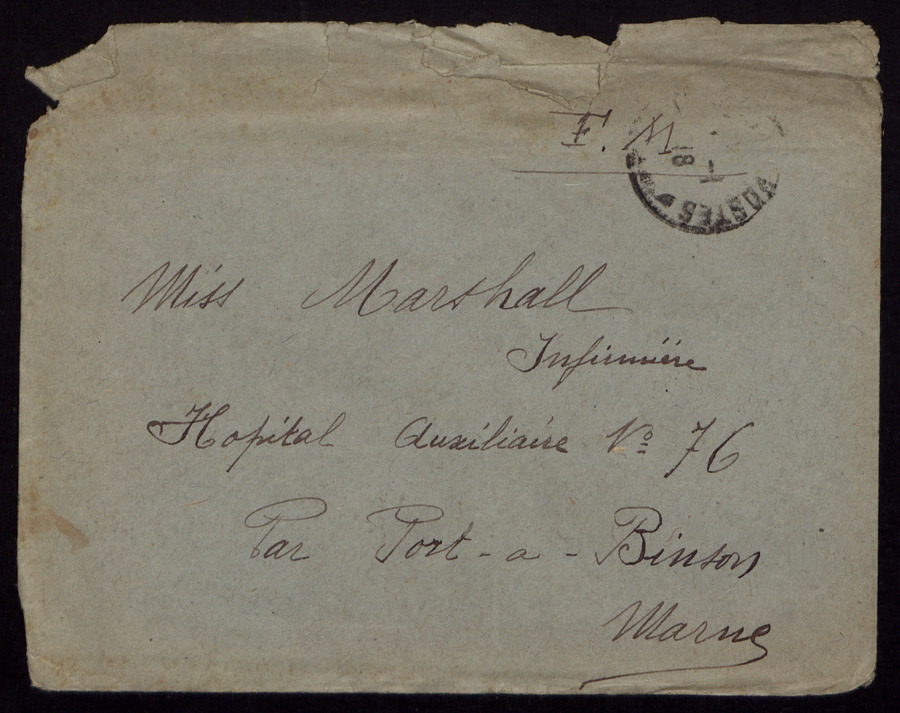 F. M
18
POSTES
Miss Marshall
Infirmière
Hopital Auxiliaire Nº 76
Par Port-a-Binson
Marne